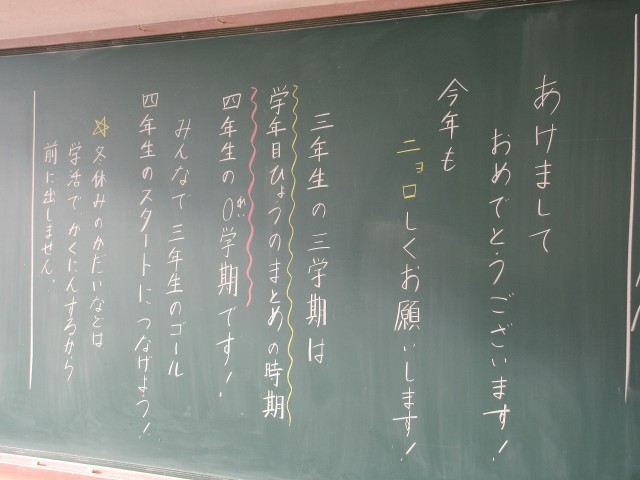 あけまして
おめでとうございます!
今年も
ニョロしくお願いします!
三年生の三学期は
学年目ひょうのまとめの時期
四年生の0学期です!
れい
みんなで三年生のゴール
四年生のスタートにつなげよう!
☆冬休みのかだいなどは
学活でかくにんするから
前に出しません。